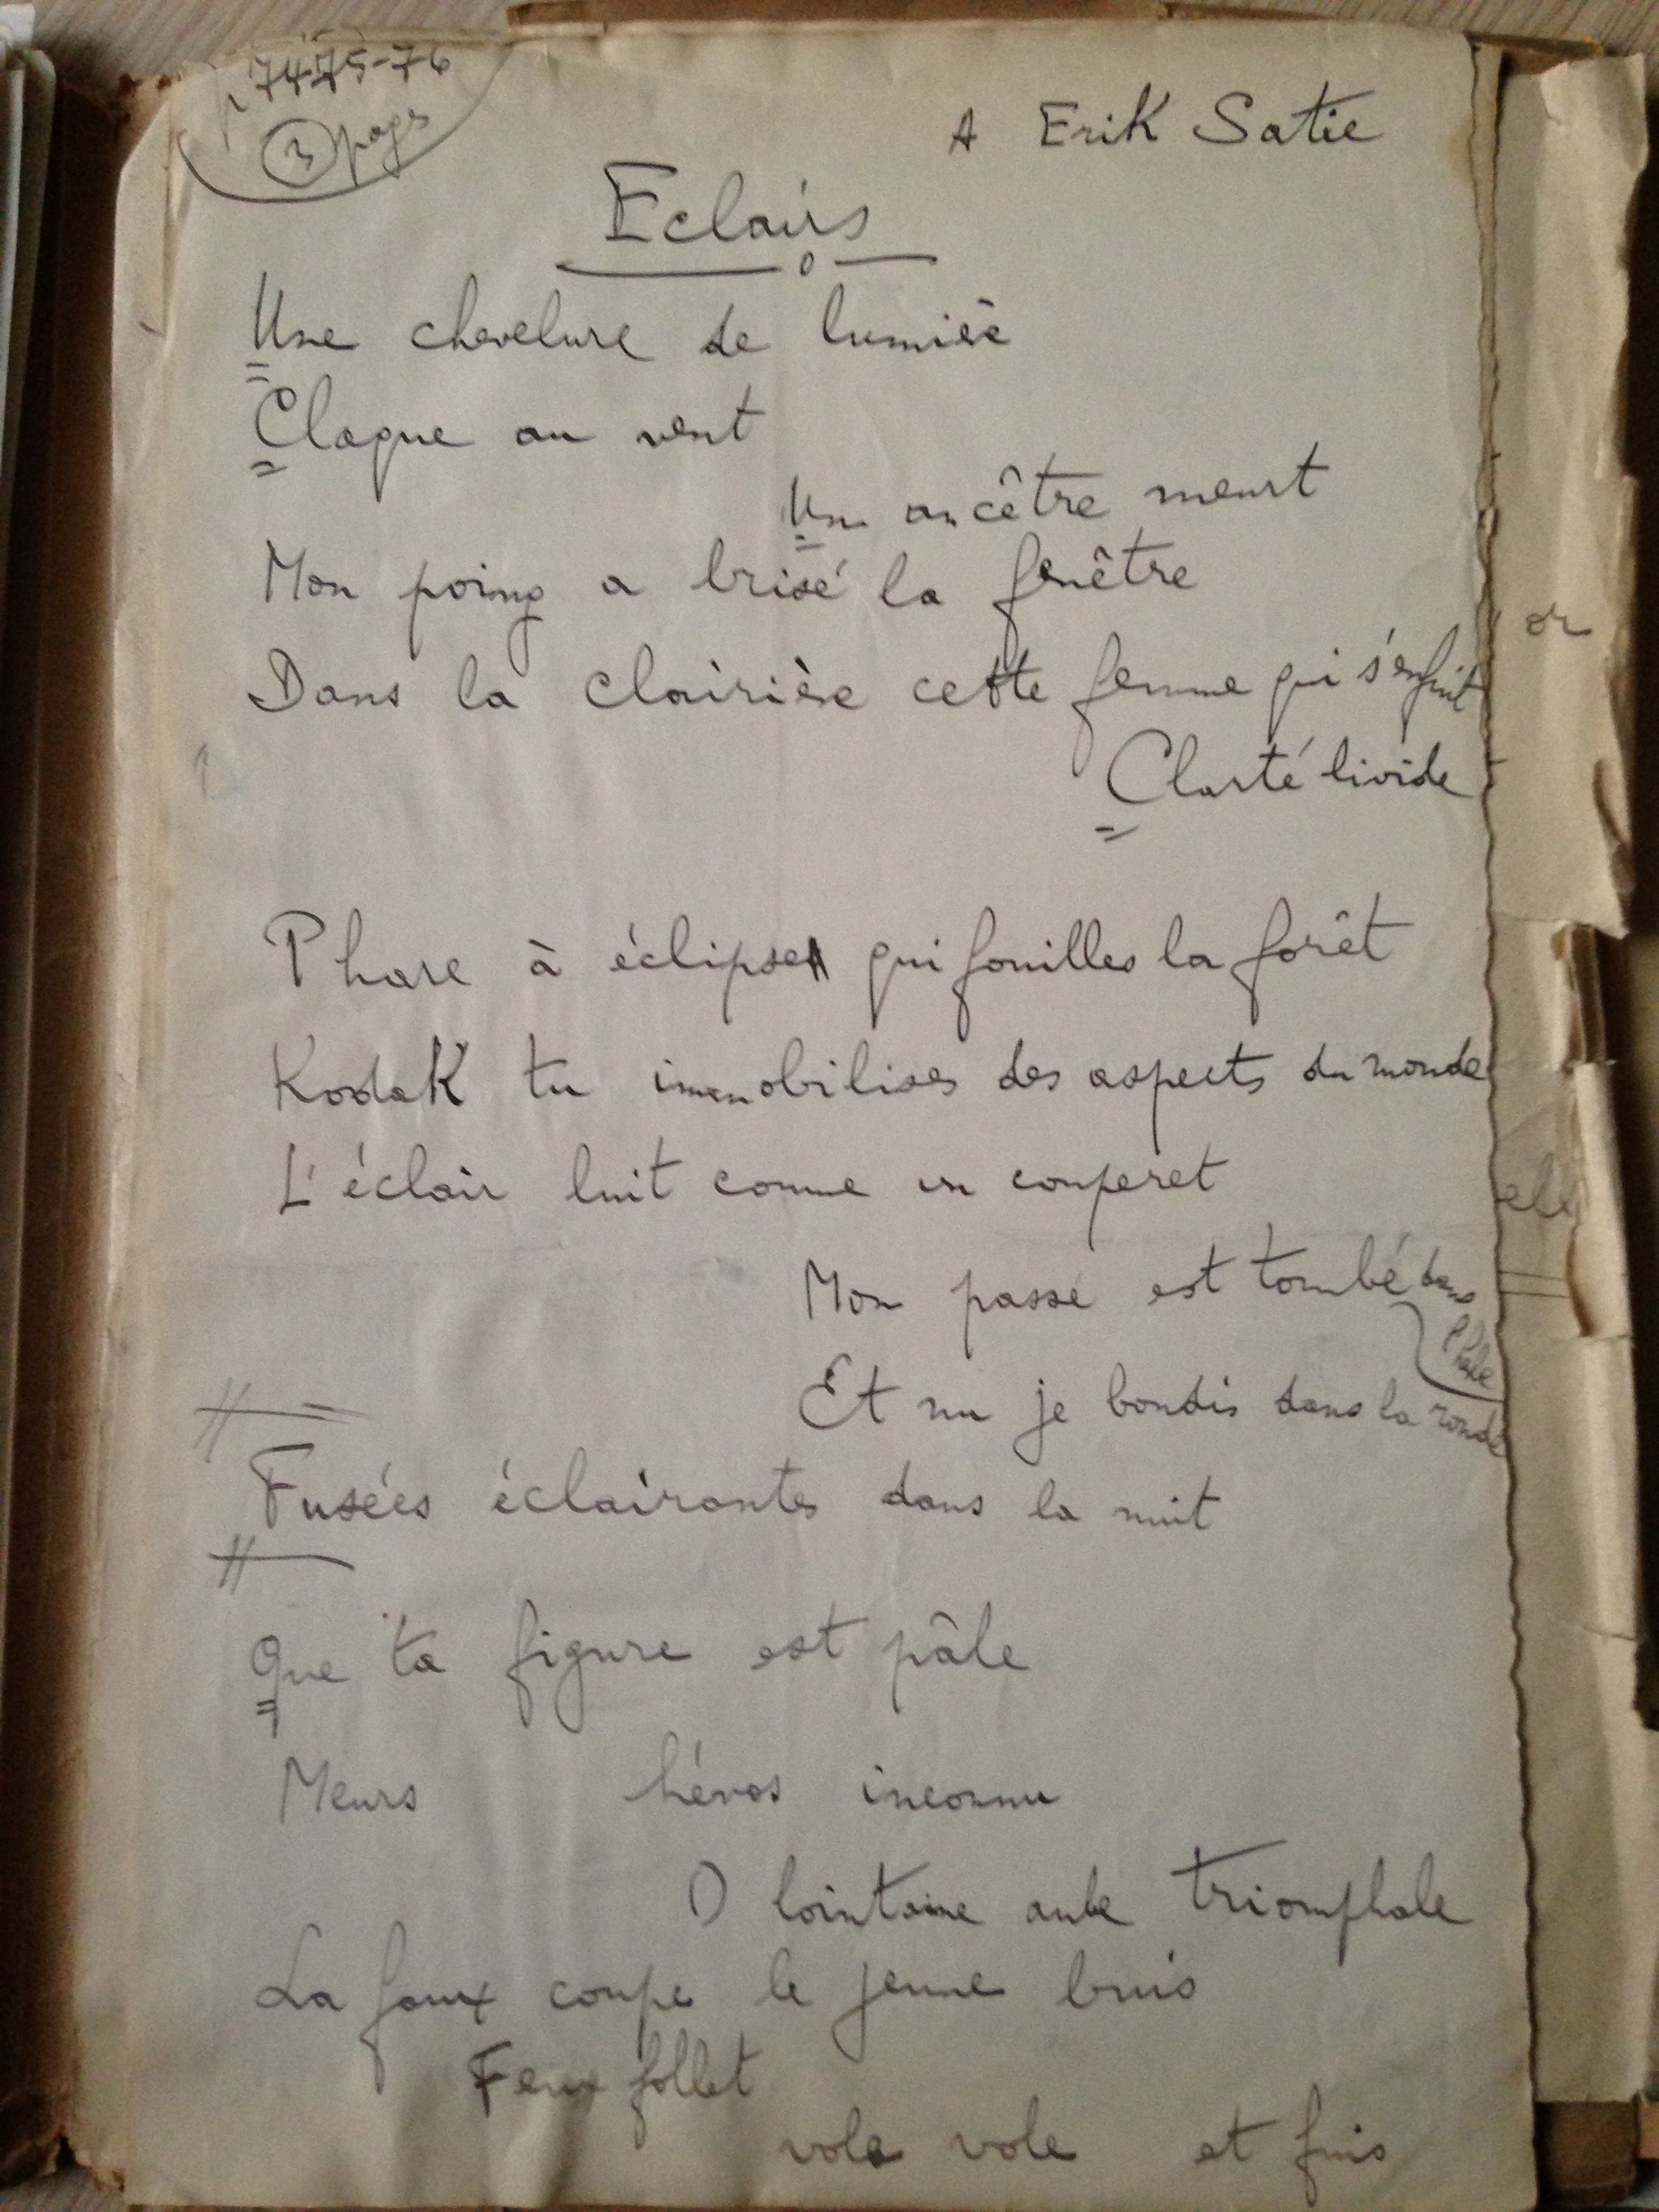 74-75-76
3 pages
A Erik Satie
Eclairs
Une chevelure de lumière
Claque au vent
Un ancêtre meurt
Mon poing a brisé la fenêtre
Dans la clairière cette femme qui s'enfuit
Clarté livide
Phare à éclipses qui fouilles la forêt
Kodak tu immobilises des aspects du monde
L'éclair luit comme un couperet
Mon passé est tombé dans
Et nu je bondis dans la ronde
Fusées éclairantes dans la nuit
Que ta figure est pâle
Meurs héros inconnu
O lointaine aube triomphale
La faux coupe le jeune buis
Feux follet
vole vole et fuis